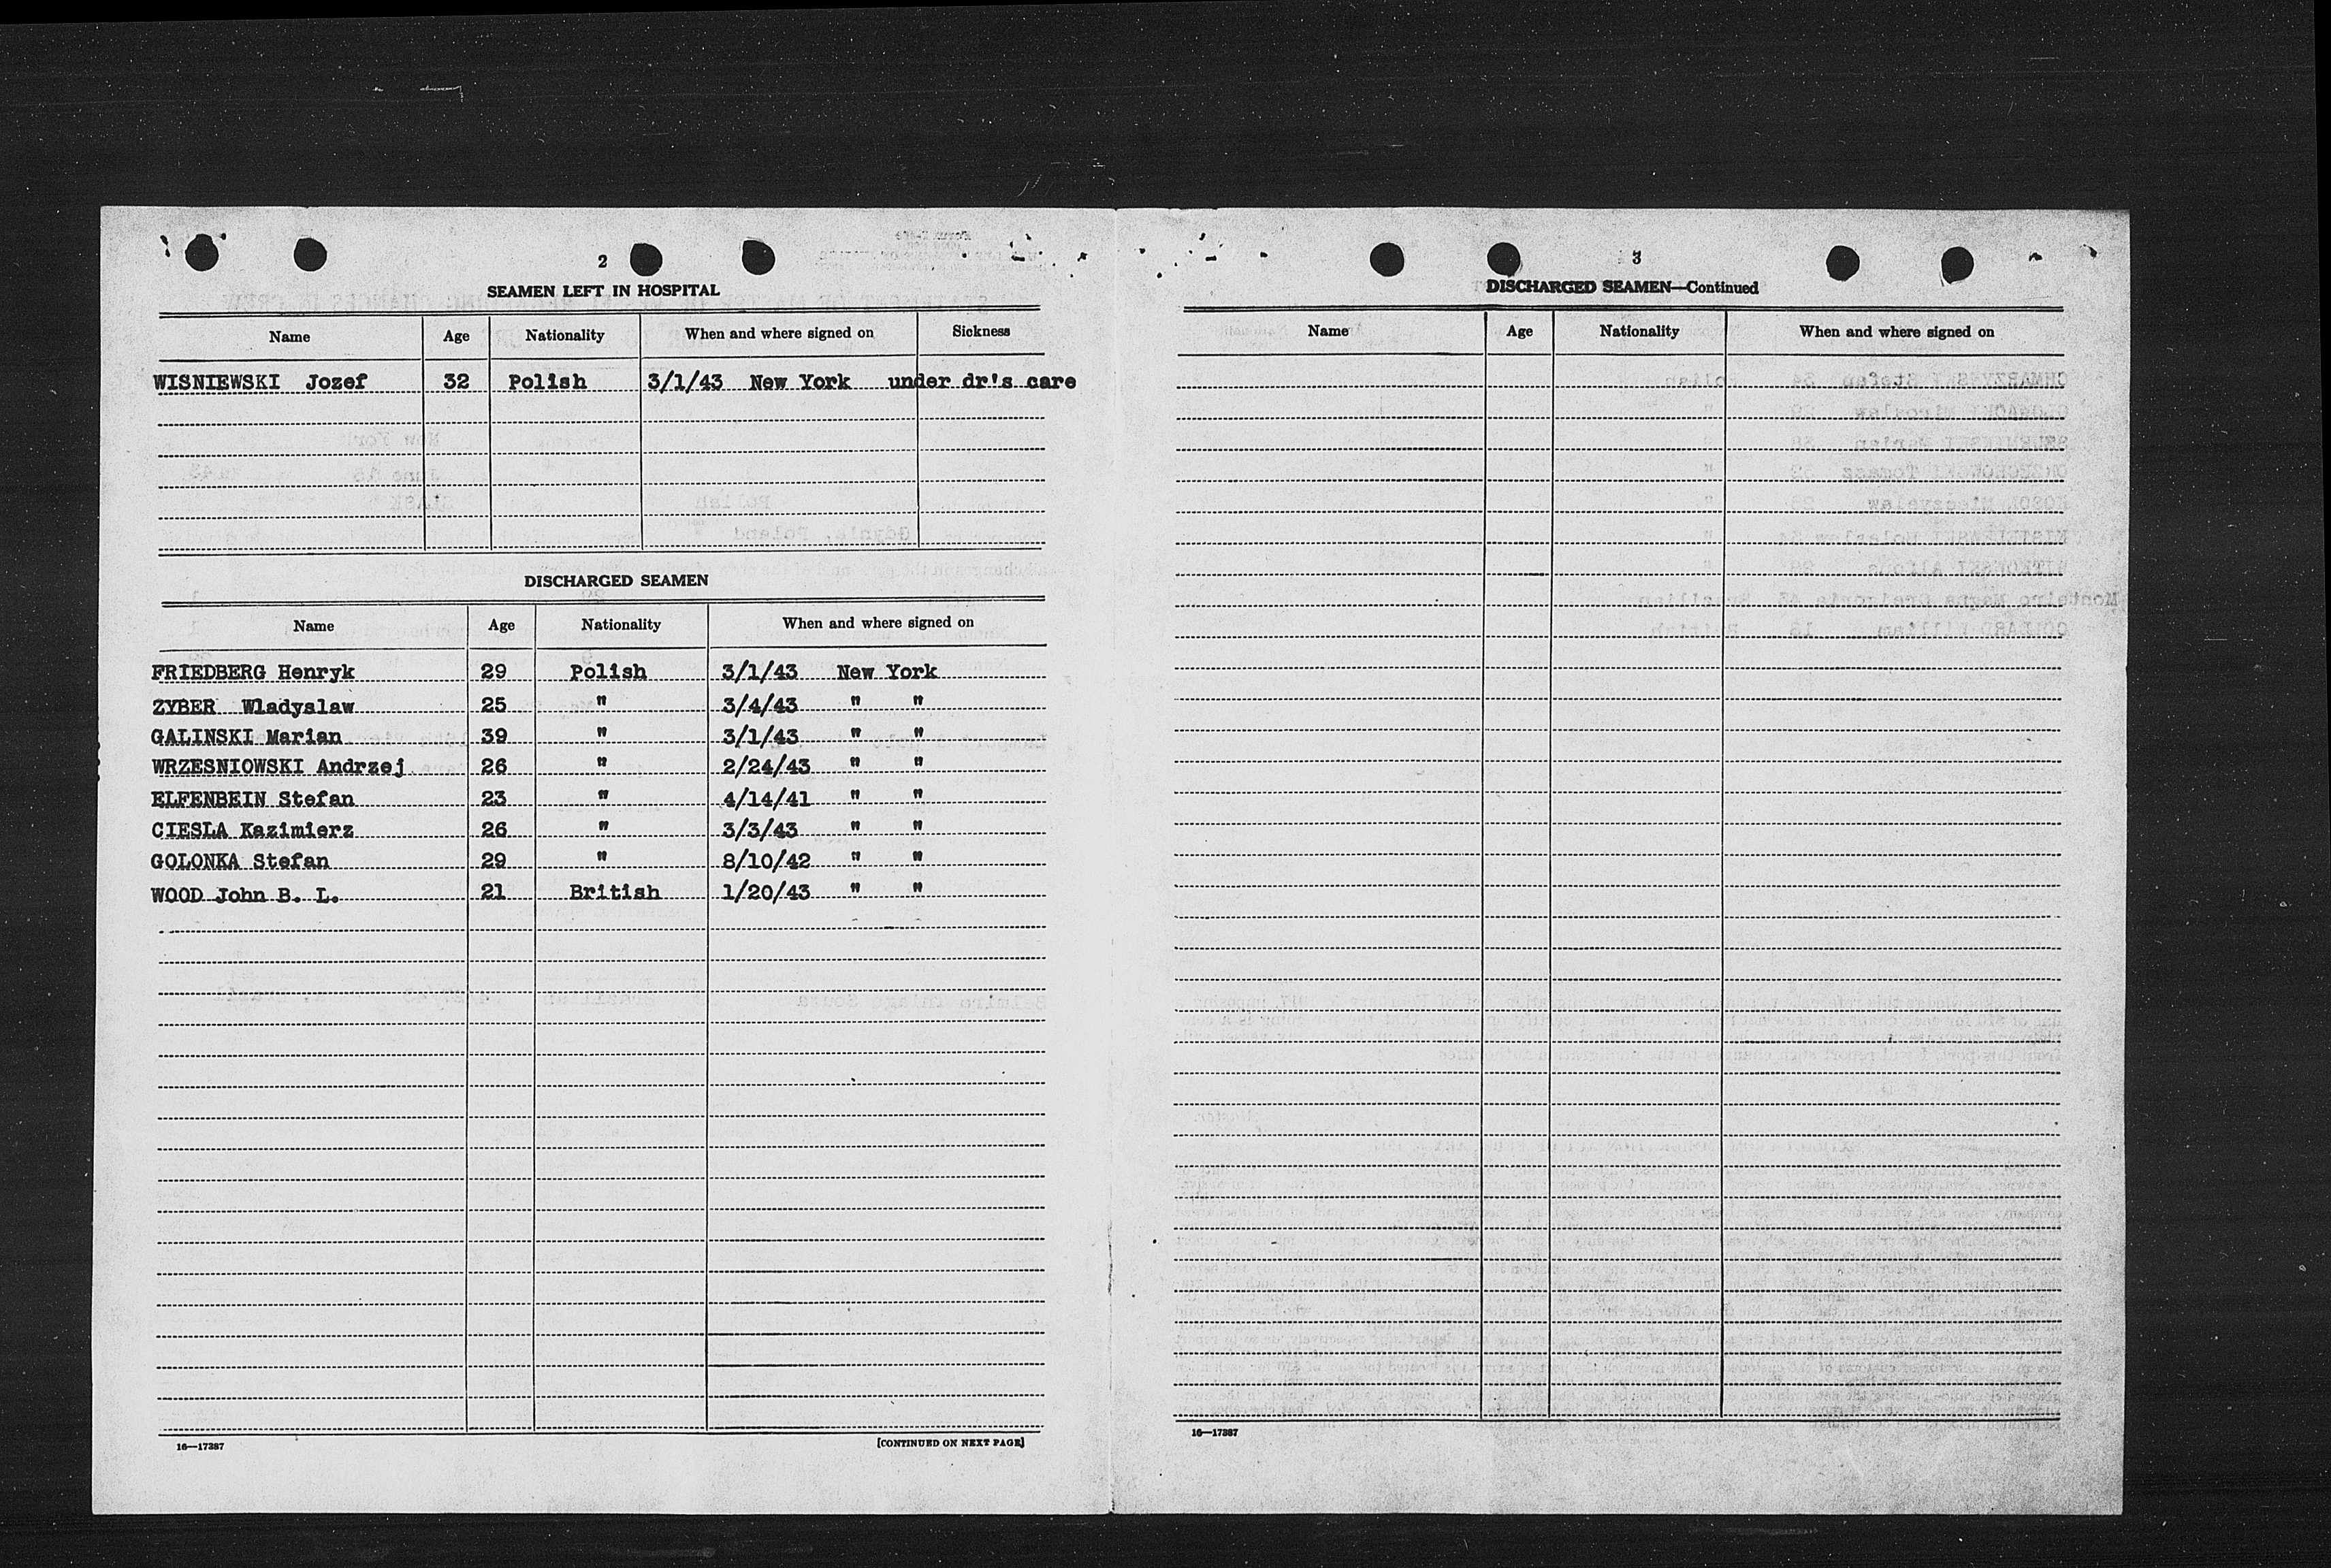 2
SEAMEN LEFT IN HOSPITAL
Name Age Nationality When and where signed on Sickness
WISNIEWSKI Jozef 32 Polish 3/1/43 New York under dr's care
DISCHARGED SEAMEN
Name Age Nationality When and where signed on
FRIEDBERG Henryk 29 Polish 3/1/43 New York
ZYBER Wladyslaw 25 " 3/4/43 " "
GALINSKI Marian 39 " 3/1/43 " "
WRZESNIOWSKI Andrzej 26 " 2/24/43 " "
ELFENBEIN Stefan 23 " 4/14/41 " "
CIESLA Kazimierz 26 " 3/3/43 " "
GOLONKA Stefan 29 " 8/10/42 " "
WOOD John B. L. 21 British 1/20/43 " "
16—17387 [CONTINUED ON NEXT PAGE]
3
DISCHARGED SEAMEN—Continued
Name Age Nationality When and where signed on
16—17387